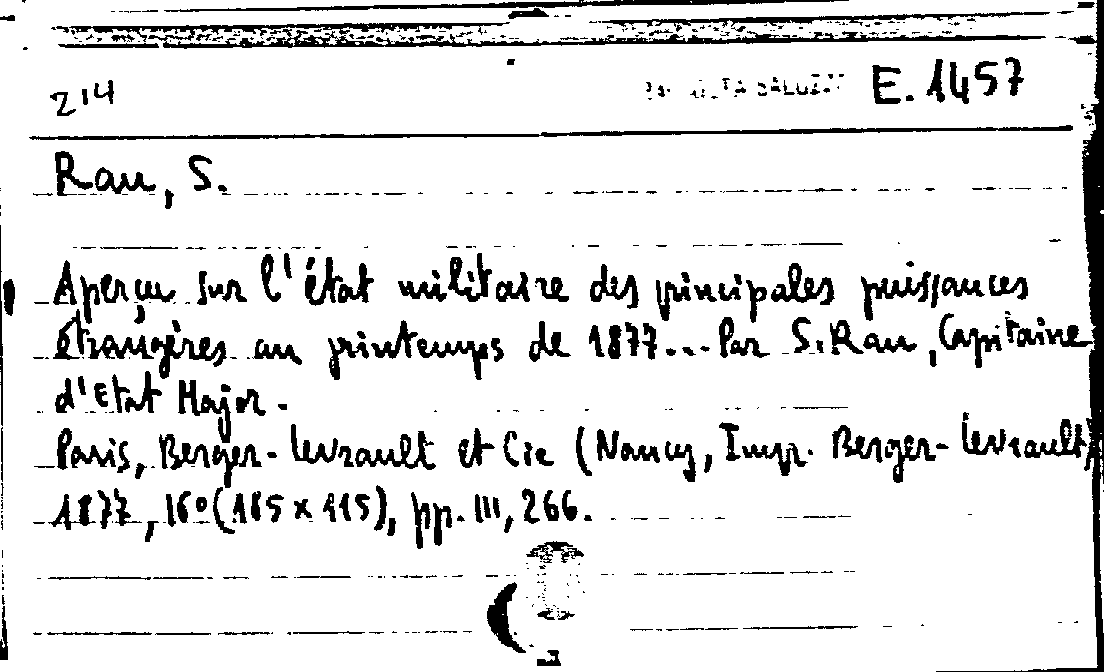 214 E.1457
Rau, S.
Aperçu sur l'état militaire des principales puissances
étrangères au printemps de 1877... Par S. Rau, Capitaine
d'Etat Major.
Paris, Berger-Levrault et Cie (Nancy, Impr. Berger-Levrault)
1877, 16° (185 x 115), pp. III, 266.